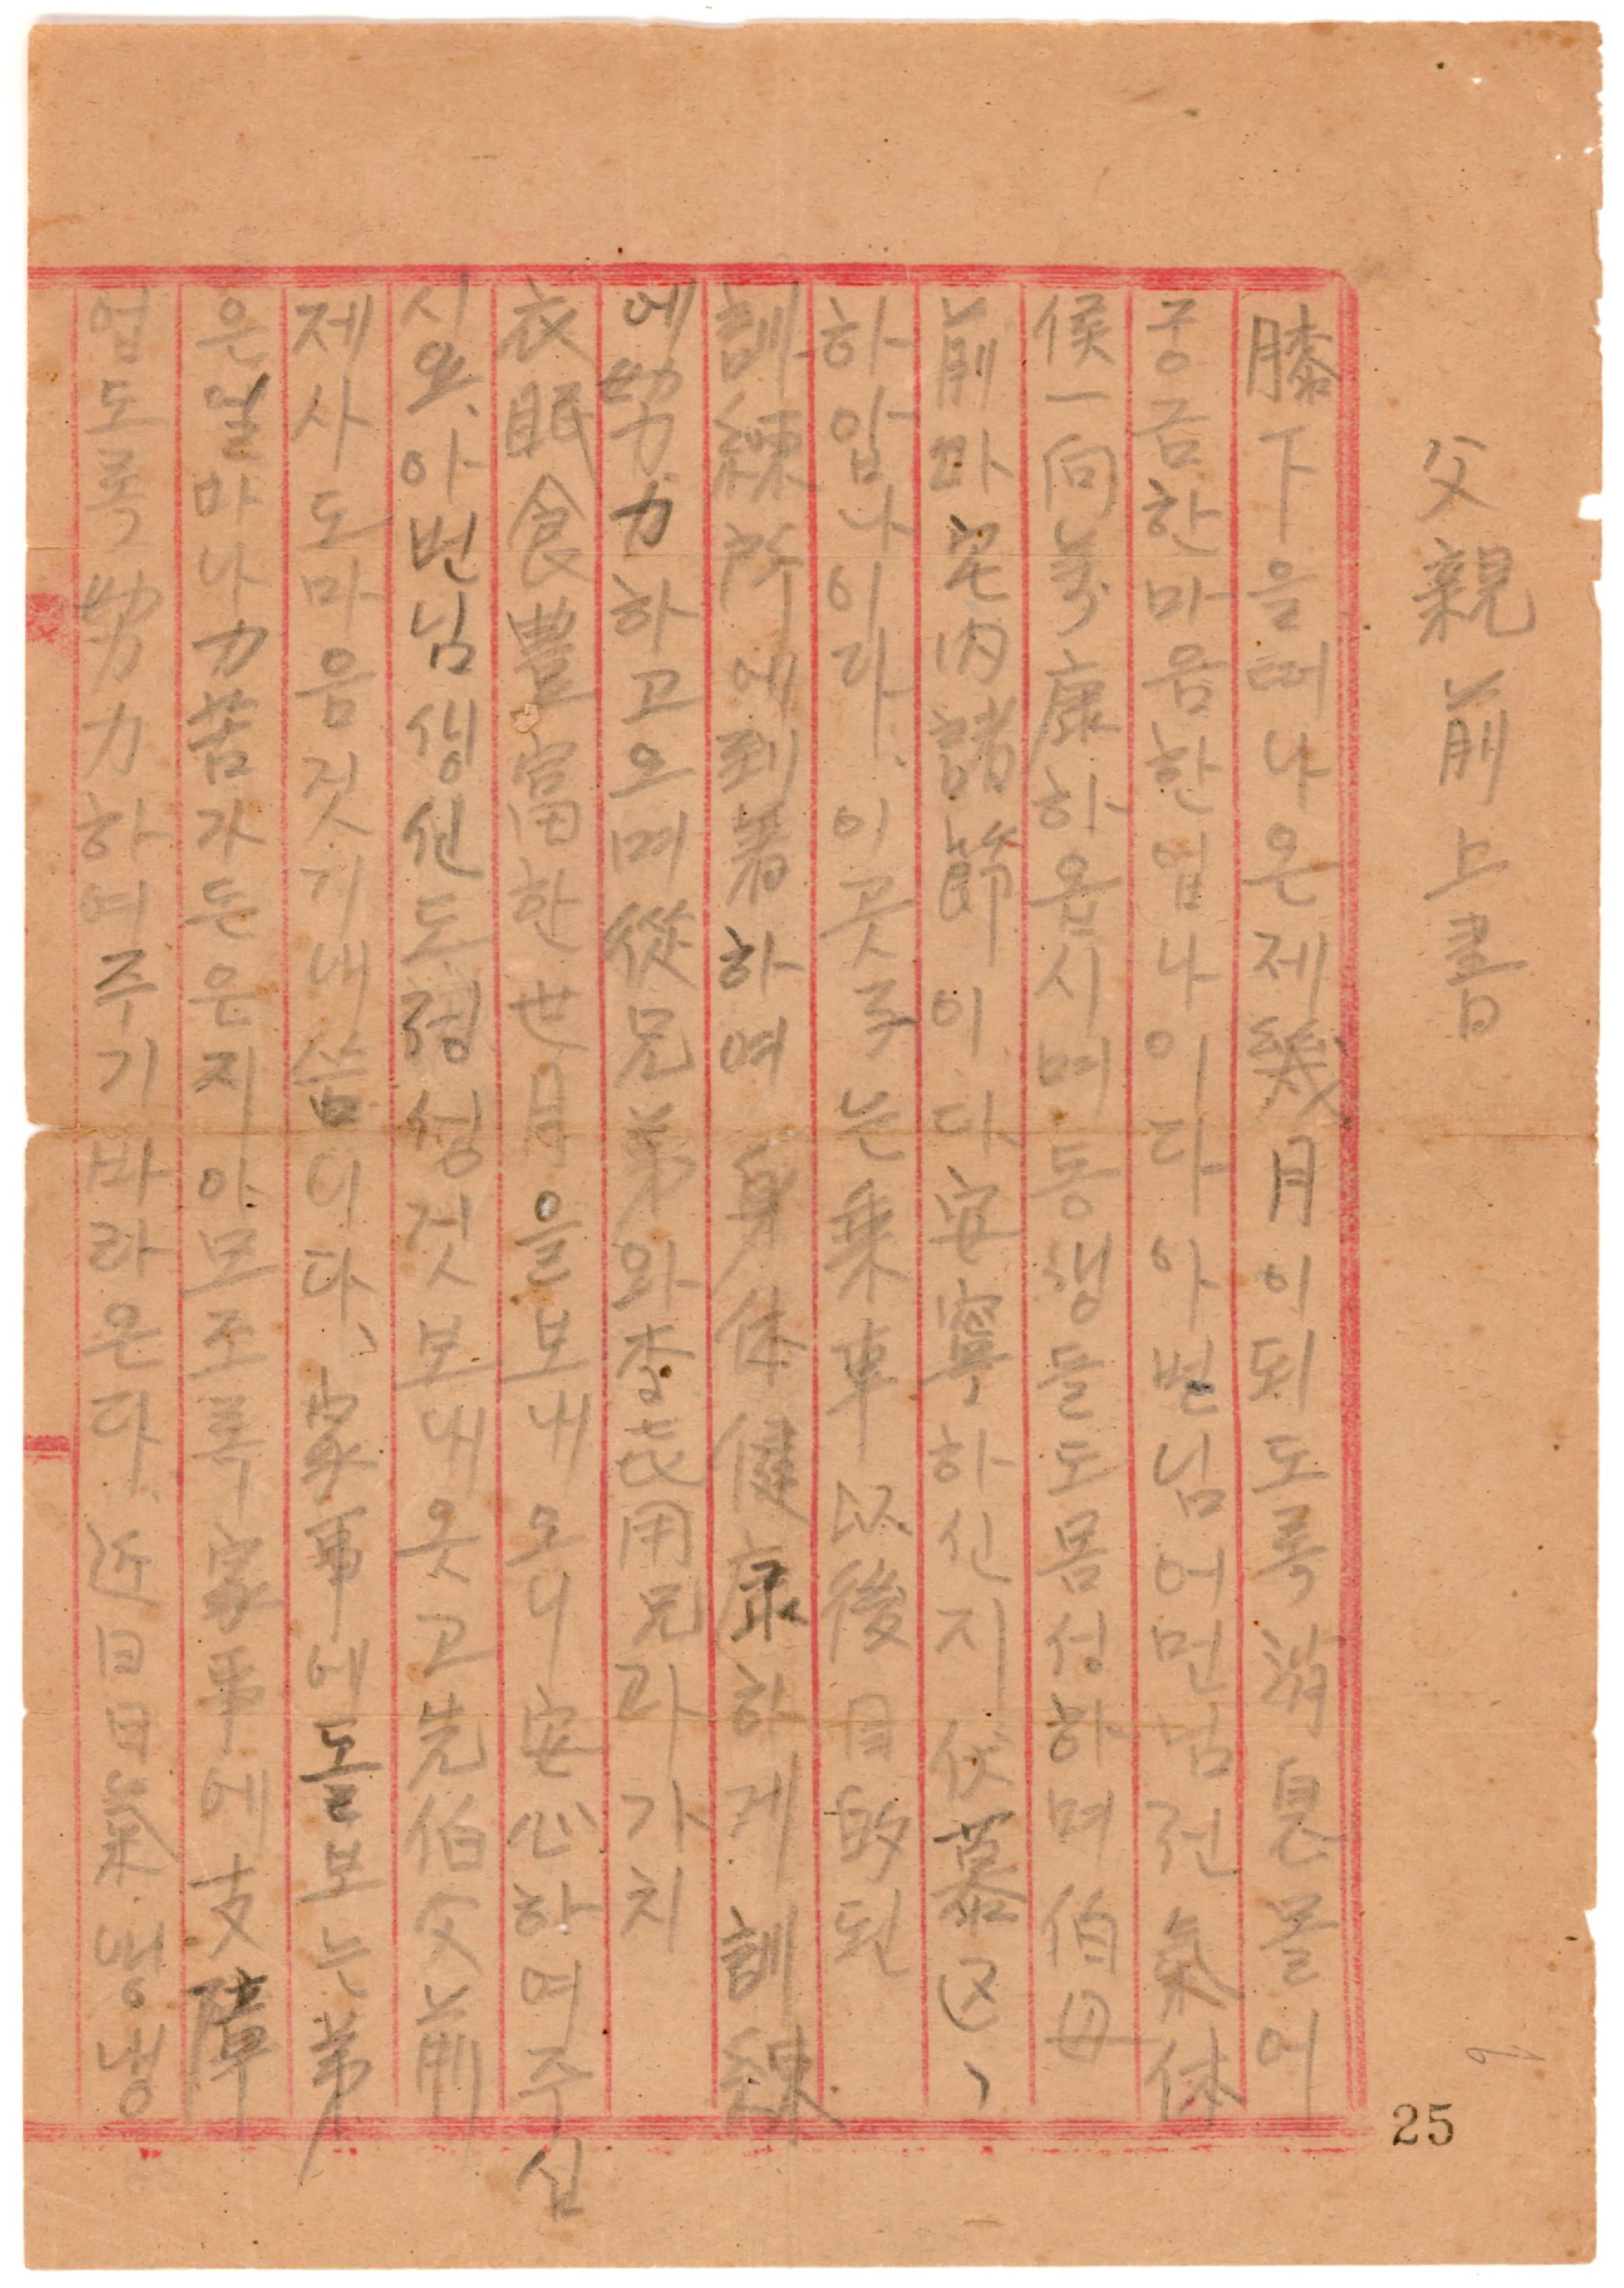 父親前上書
膝下을떠나온제幾月이되도록消息몰어
궁금한마음한업나이다아번님어먼님전氣体
侯一向萬康하옵시며동생들도몸성하며伯母
前와宅內諸節이다安寧하신지伏慕区々
하압나이다、이곳子는乘車以後目的된
訓練所에到着하여身体健康하게訓練
에努力하고오며從兄弟와李㐂用兄과가치
衣眠食豊富한世月을보내오니安心하여주십
시요、아번님생신도정성것보내옷고先伯父前
제사도마음것기내씀니다、家事에돌보는弟
은얼마나力苦가든은지아모조록家事에支障
업도록努力하여주기바라온다、近日日氣、냉냉
25